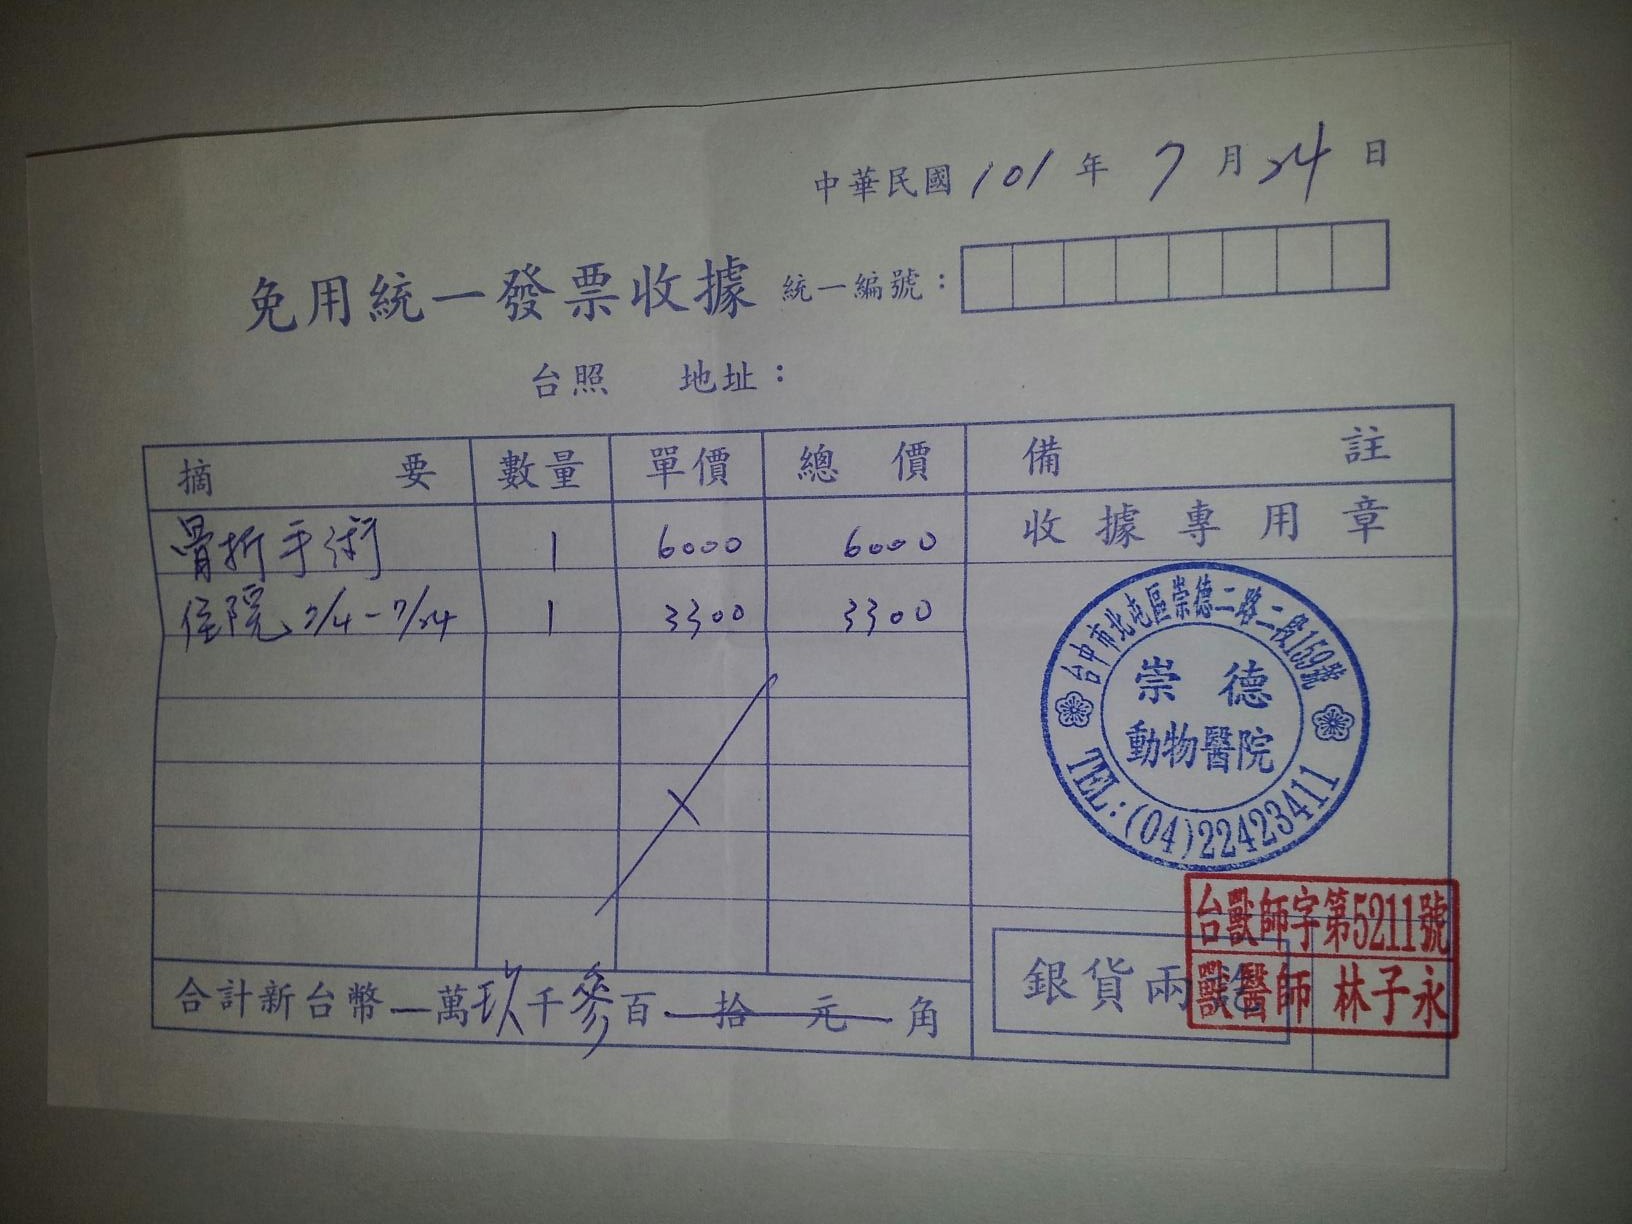 中華民國101年7月24日
免用統一發票收據 統一編號：
台照 地址：
摘要 數量 單價 總價 備註
收據專用章
骨折手術 1 6000 6000
住院 7/4-7/24 1 3300 3300
台中市北屯區崇德二路二段159號
崇德
動物醫院
TEL:(04)22423411
台獸師字第5211號
獸醫師 林子永
銀貨兩訖
合計新台幣—萬玖千參百—拾—元—角